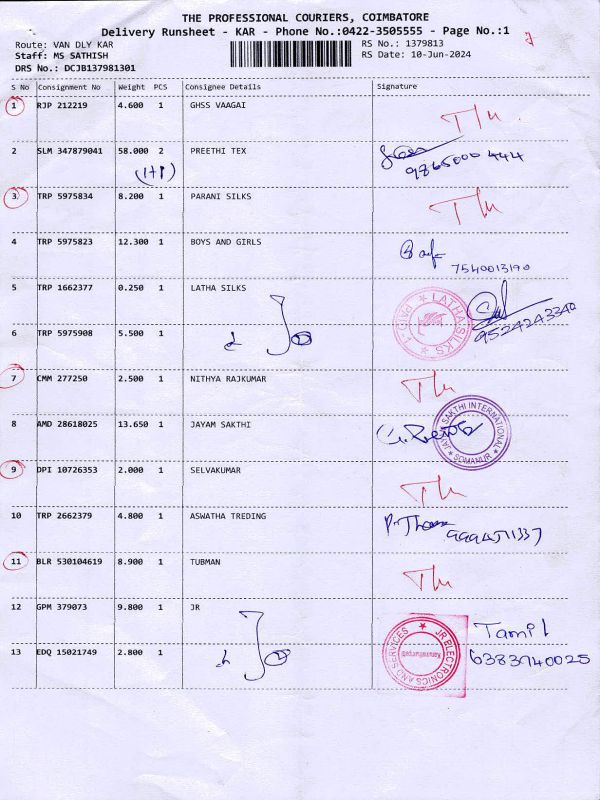 THE PROFESSIONAL COURIERS, COIMBATORE
Delivery Runsheet - KAR - Phone No.:0422-3505555 - Page No.:1
Route: VAN DLY KAR
RS No.: 1379813
Staff: MS SATHISH
RS Date: 10-Jun-2024
DRS No.: DCJB137981301
S No Consignment No Weight PCS Consignee Details Signature
1 RJP 212219 4.600 1 GHSS VAAGAI
2 SLM 347879041 58.000 2 PREETHI TEX
9865000 444
(1+1)
3 TRP 5975834 8.200 1 PARANI SILKS
4 TRP 5975823 12.300 1 BOYS AND GIRLS
7540013190
5 TRP 1662377 0.250 1 LATHA SILKS
LATHA SILKS
9524243340
6 TRP 5975908 5.500 1
7 CMM 277250 2.500 1 NITHYA RAJKUMAR
8 AMD 28618025 13.650 1 JAYAM SAKTHI
JAYAM SAKTHI INTERNATIONAL
SOMANUR
9 DPI 10726353 2.000 1 SELVAKUMAR
10 TRP 2662379 4.800 1 ASWATHA TREDING
11 BLR 530104619 8.900 1 TUBMAN
12 GPM 379073 9.800 1 JR
JR ELECTRONICS AND SERVICES
Tamil
13 EDQ 15021749 2.800 1
6383940025